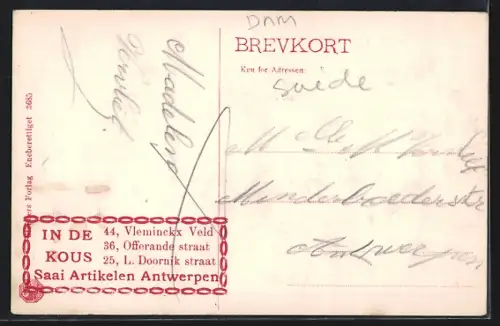 DNM
BREVKORT
Kun for Adressen:
Suède
Madeleine
M
Minderbroederstr
Antwerpen
Forlag Eneberettiget 3685
IN DE KOUS
44, Vleminckx Veld
36, Offerande straat
25, L. Doornik straat
Saai Artikelen Antwerpen